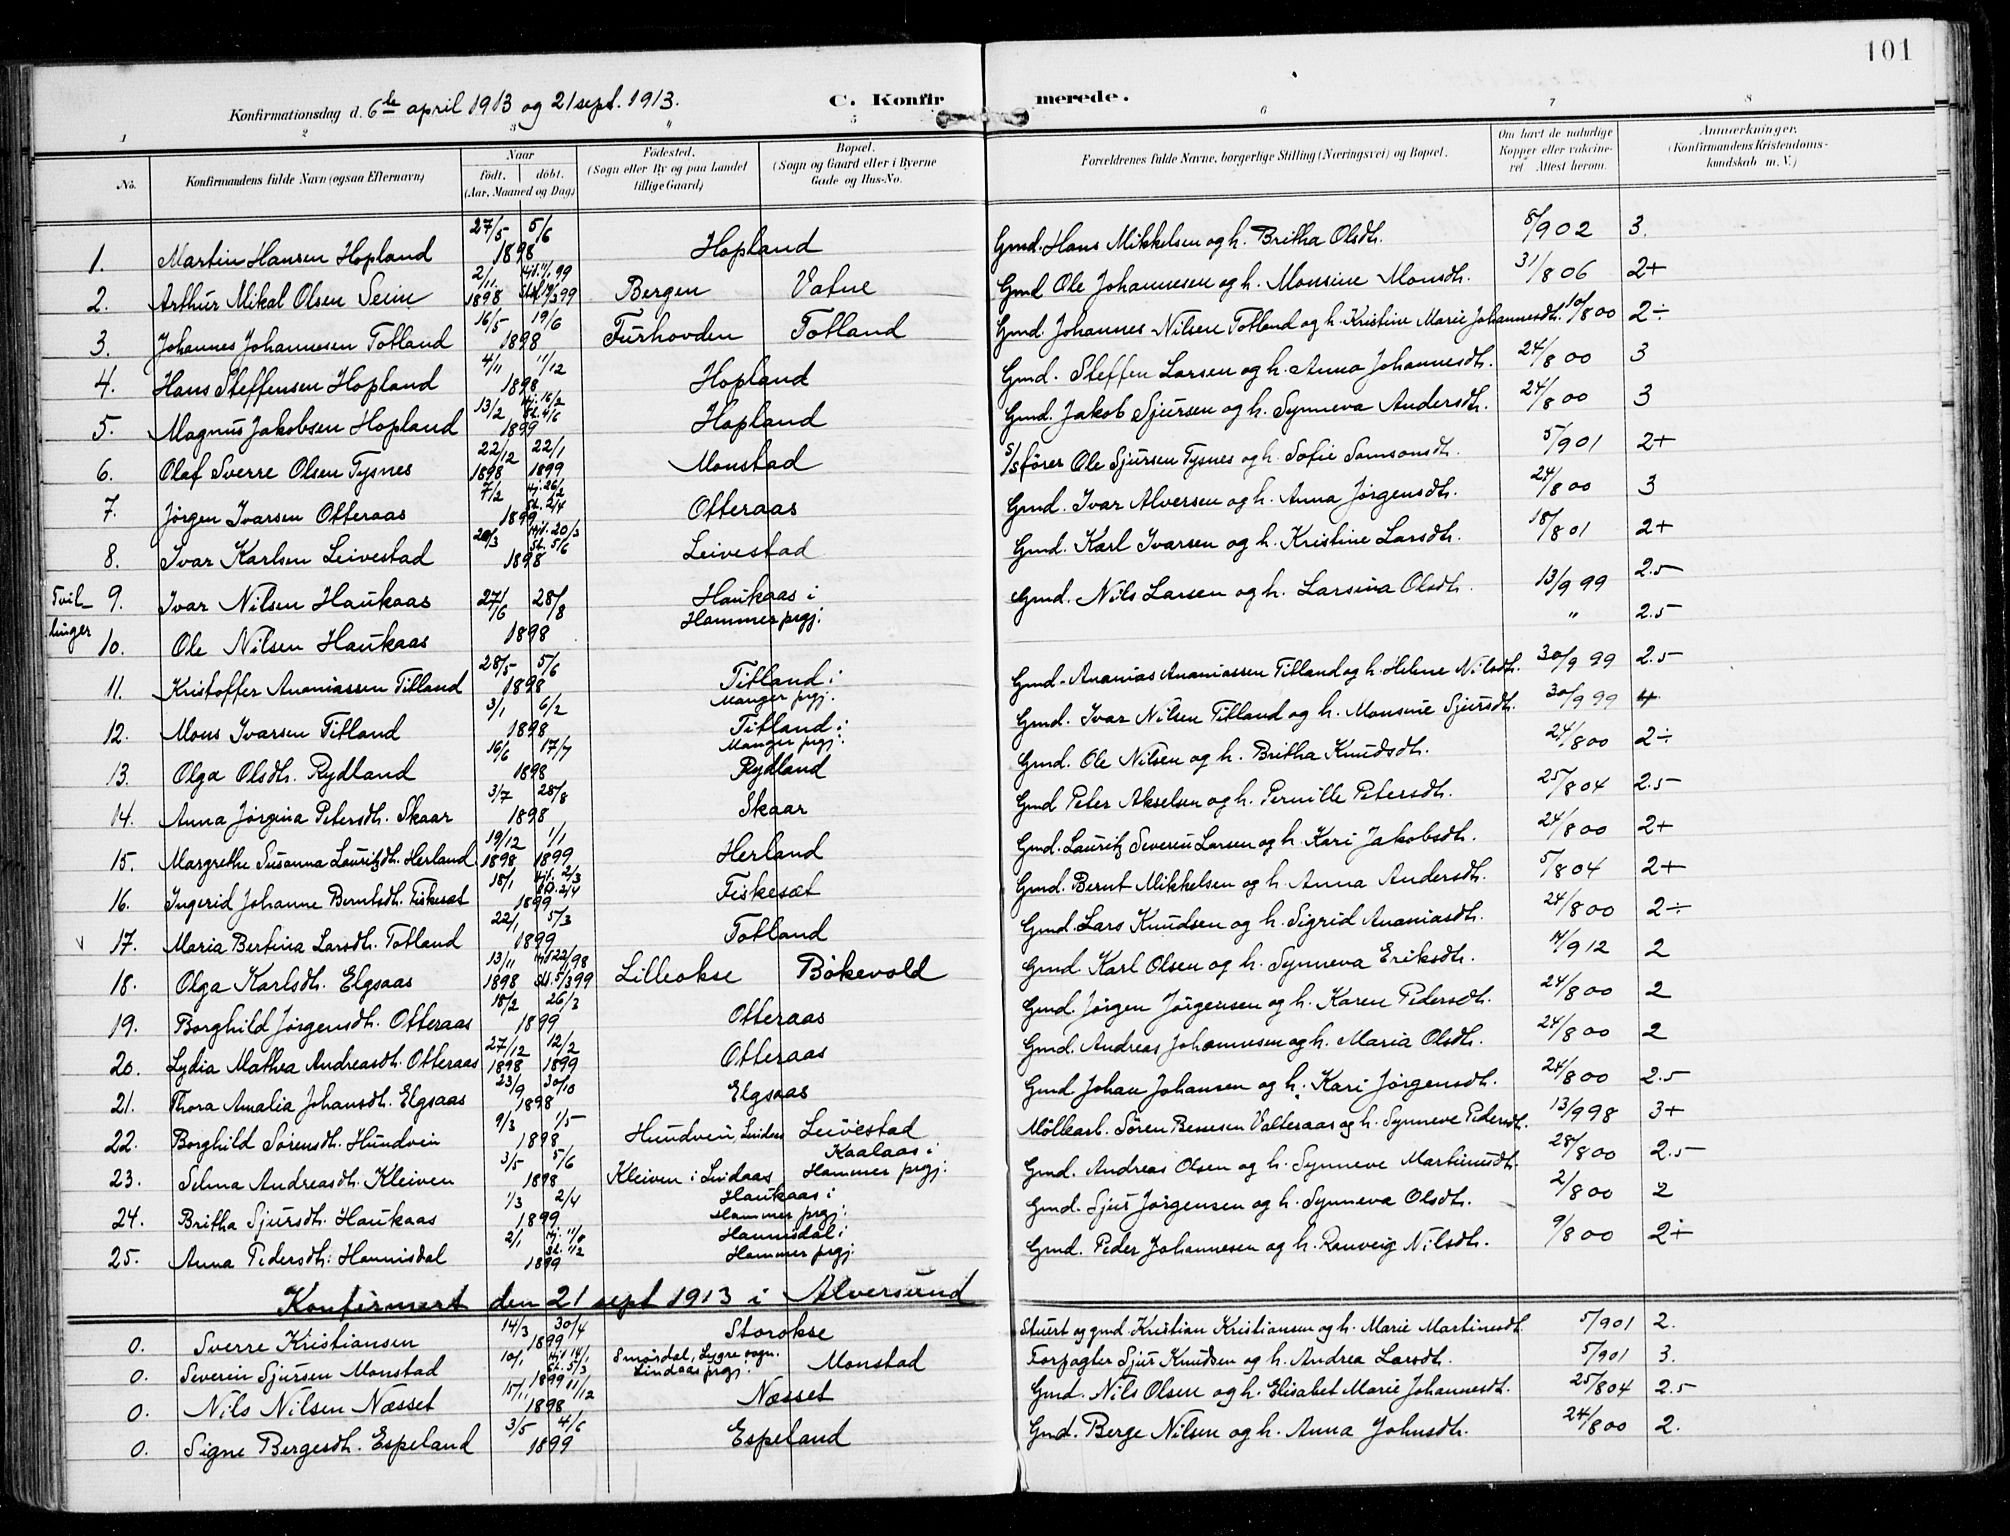 101
Konfirmationsdag d. 6te april 1913 og 21 sept. 1913. C. Konfirmerede.
1 2 3 4 5 6 7 8
No. Konfirmandens fulde Navn (ogsaa Efternavn) Naar født. døbt. (Aar, Maaned og Dag) Fødested. (Sogn eller By og paa Landet tillige Gaard) Bopæl. (Sogn og Gaard eller i Byerne Gade og Hus-No. Forældrenes fulde Navne, borgerlige Stilling (Næringsvei) og Bopæl. Om havt de naturlige Kopper eller vakcineret Attest herom. Anmerkninger. (Konfirmandens Kristendomskundskab m. V.)
1. Martin Hansen Hopland 27/5 5/6 1898 Hopland Gmd. Hans Mikkelsen og h. Britha Olsdt. 5/9 02 3.
2. Arthur Mikal Olsen Seim 2/11 1898 Bergen Vatne Gmd Ole Johannesen og h. Monsine Monsdt. 31/8 06 2+
3. Johannes Johannesen Totland 16/5 19/6 1898 Furhovden Totland Gmd. Johannes Nilsen Totland og h. Kristine Marie Johannesdt. 10/8 00 2÷
4. Hans Steffensen Hopland 4/11 11/12 1898 Hopland Gmd. Steffen Larsen og h. Anna Johannesdt. 24/8 00 3
5. Magnus Jakobsen Hopland 13/2 Hj. 16/2 St. 4/6 1899 Hopland Gmd. Jakob Sjursen og h. Synneva Andersdt. 24/8 00 3
6. Olaf Sverre Olsen Tysnes 22/12 1898 22/1 1899 Monstad S/Sfører Ole Sjursen Tysnes og h. Sofie Samsonsdt. 5/9 01 2+
7. Jørgen Ivarsen Otteraas 7/2 Hj. 26/2 St. 2/4 1899 Otteraas Gmd. Ivar Alversen og h. Anna Jørgensdt. 24/8 00 3
8. Ivar Karlsen Leivestad 20/3 Hj. 20/3 St. 5/6 1898 Leivestad Gmd. Karl Ivarsen og h. Kristine Larsdt. 18/8 01 2+
Tvillinger 9. Ivar Nilsen Haukaas 27/6 28/8 Haukaas i Hammer prgj. Gmd. Nils Larsen og h. Larsina Olsdt. 13/9 99 2.5
10. Ole Nilsen Haukaas 1898 " 2.5
11. Kristoffer Ananiassen Titland 28/5 5/6 1898 Titland i Manger prgj. Gmd. Ananias Ananiassen Titland og h. Helene Nilsdt. 30/9 99 2.5
12. Mons Ivarsen Titland 3/1 6/2 1898 Titland i Manger prgj. Gmd. Ivar Nilsen Titland og h. Monsine Sjursdt. 30/9 99 4.
13. Olga Olsdt. Rydland 16/6 17/7 1898 Rydland Gmd. Ole Nilsen og h. Britha Knudsdt. 24/8 00 2÷
14. Anna Jørgina Petersdt. Skaar 3/7 28/8 1898 Skaar Gmd Peter Akselsen og h. Pernille Petersdt. 25/8 04 2.5
15. Margrethe Susanna Lauritzdt. Herland 19/12 1898 1/1 1899 Herland Gmd. Lauritz Severin Larsen og h. Kari Jakobsdt. 24/8 00 2+
16. Ingerid Johanne Berntsdt. Fiskesæt 18/1 Hj. 2/3 St. 2/4 1899 Fiskesæt Gmd. Bernt Mikkelsen og h. Anna Andersdt. 5/8 04 2+
17. Maria Bertina Larsdt. Totland 22/1 5/3 1899 Totland Gmd. Lars Knudsen og h. Sigrid Ananiasdt. 24/8 00 2÷
18. Olga Karlsdt. Elgsaas 13/11 1898 St. 5/3 99 Lilleokse Bökevold Gmd. Karl Olsen og h. Synneva Eriksdt. 14/9 12 2
19. Borghild Jørgensdt. Otteraas 18/2 26/3 1899 Otteraas Gmd. Jørgen Jørgensen og h. Karen Pedersdt. 24/8 00 2
20. Lydia Mathea Andreasdt. Otteraas 27/12 1898 12/2 1899 Otteraas Gmd. Andreas Johannesen og h. Maria Olsdt. 24/8 00 2
21. Thora Amalia Johansdt. Elgsaas 23/9 30/10 1898 Elgsaas Gmd Johan Johansen og h. Kari Jørgensdt. 24/8 00 2.5
22. Borghild Sørensdt. Hundvin 9/3 1/5 1898 Hundvin Lindaas Leivestad Møllearb. Søren Bensen Valteraas og h. Synneve Pedersdt. 13/9 98 3+
23. Selma Andreasdt. Kleiven 3/5 5/6 1898 Kleiven i Lindaas Kaalaas i Hammer prgj. Gmd. Andreas Olsen og h. Synneve Martinusdt. 28/8 00 2.5
24. Britha Sjursdt. Haukaas 1/3 2/4 1899 Haukaas i Hammer prgj. Gmd. Sjur Jørgensen og h. Synneva Olsdt. 2/8 00 2
25. Anna Pedersdt. Hannisdal 2/1 1899 Hannisdal i Hammer prgj. Gmd. Peder Johannesen og h. Ranveig Nilsdt. 9/8 00 2÷
Konfirmert den 21 sept 1913 i Alversund
0. Sverre Kristiansen 14/3 30/4 1899 Storokse Stuert og gmd Kristian Kristiansen og h. Marie Martinusdt. 5/9 01 2.
0. Severin Sjursen Monstad 10/1 Hj. 14/1 St. 5/3 1899 Smørdal, Lygre sogn. Lindaas prgj. Monstad Forpagter Sjur Knudsen og h. Andrea Larsdt. 5/9 01 3.
0. Nils Nilsen Næsset 15/11 11/12 1898 Næsset Gmd. Nils Olsen og h. Elisabet Marie Johannesdt. 25/8 04 2.5
0. Signe Bergesdt. Espeland 3/5 4/6 1899 Espeland Gmd. Berge Nilsen og h. Anna Johnsdt. 24/8 00 2.